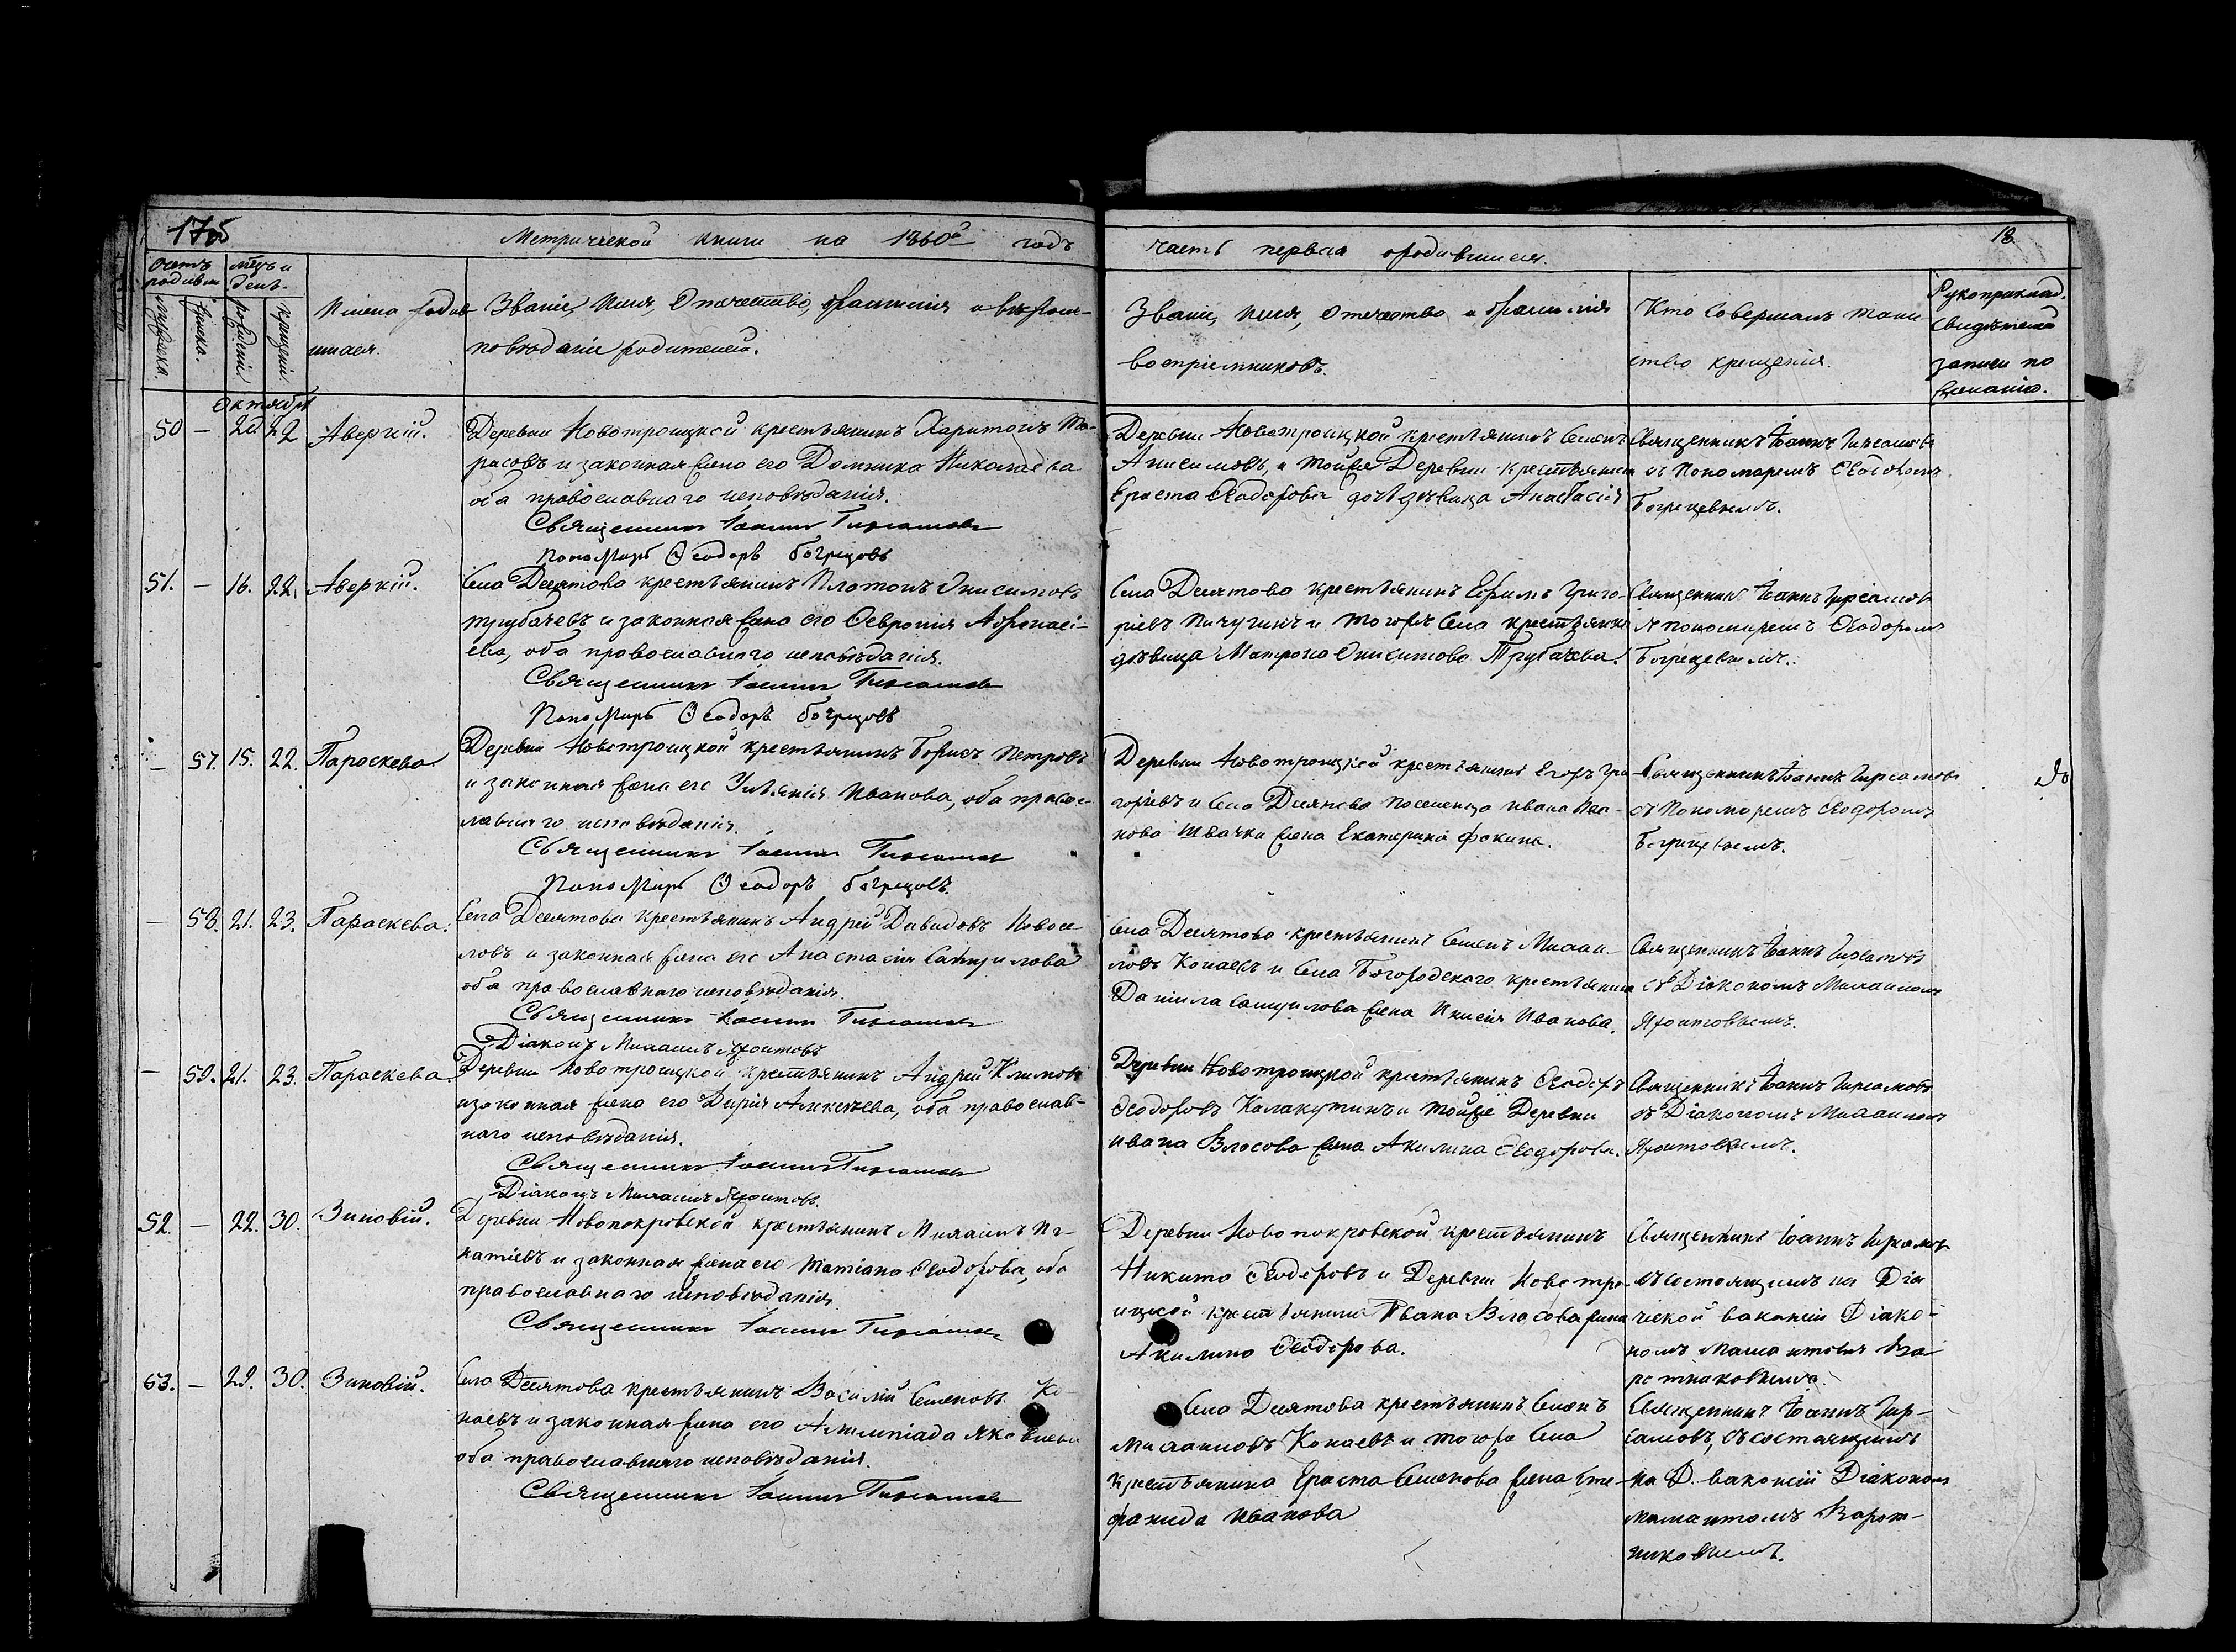 175
Метрической книги на 1860й годъ
часть первая о родившихся.
18.
Счетъ родивш
мужеска.
женска.
мѣсць и день
рожденія
крещенія
Имена родив
шихся.
Званіе, Имя, Отчество, фамилія и вѣроис-
повѣданіе родителей.
Званіе, Имя, Отчество и фамилія
воспріемниковъ.
Кто совершалъ таин
ство крещенія.
Рукоприклад.
свидѣтелей
записи по
желанію.
Октября
50 — 20 22 Аверкій.
Деревни Новотроицкой крестьянинъ Харитонъ Та-
расовъ и законная жена его Домника Николаева
оба православнаго исповѣданія.
Священникъ Іоаннъ
Пономарь Ѳеодоръ Богрецовъ
Деревни Новотроицкой крестьянинъ Семенъ
Анисимовъ, и тойже Деревни крестьянина
Ераста Ѳеодорова дочь дѣвица Анастасія
Священникъ Іоаннъ
съ Пономаремъ Ѳеодоромъ
Богрецевымъ.
51. — 16. 22. Аверкій.
Села Десятова крестьянинъ Платонъ Онисимовъ
Трубачевъ и законная жена его Ѳевронія Афонасі-
ева, оба православнаго исповѣданія.
Священникъ Іоаннъ
Пономарь Ѳеодоръ Богрецовъ
Села Десятова крестьянинъ Ефимъ Григо-
ріевъ Пичугинъ и тогоже Села крестьянка
дѣвица Матрона Онисимова Трубачева.
Священникъ Іоаннъ
съ пономаремъ Ѳеодоромъ
Богрецевымъ.
— 57. 15. 22. Параскева
Деревни Новотроицкой крестьянинъ Борисъ Петровъ
и законная жена его Ульянія Иванова, оба право-
славнаго исповѣданія.
Священникъ Іоаннъ
Пономарь Ѳеодоръ Богрецовъ.
Деревни Новотроицкой крестьянинъ Егоръ Гри-
горіевъ и Села Десятова поселенца Ивана Ива-
нова жена Екатерина Фокина.
Священникъ Іоаннъ
съ Пономаремъ Ѳеодоромъ
Богрецевымъ.
— 58. 21. 23. Параскева.
Села Десятова крестьянинъ Андрей Давидовъ Новосе-
ловъ и законная жена его Анастасія
оба православнаго исповѣданія.
Священникъ Іоаннъ
Діаконъ Михаилъ
Села Десятова крестьянинъ Семенъ Михаи-
ловъ Конаевъ и Села Богородскаго крестьянина
Даніила жена Иванова.
Священникъ Іоаннъ
съ Діакономъ Михаиломъ
— 59. 21. 23. Параскева.
Деревни Новотроицкой крестьянинъ Андрей Климовъ
и законная жена его Дарія Алексѣева, оба православ-
наго исповѣданія.
Священникъ Іоаннъ
Діаконъ Михаилъ
Деревни Новотроицкой крестьянинъ Ѳеодоръ
Ѳеодоровъ Калакутинъ и тойже Деревни
Ивана Власова жена Акилина Ѳеодорова.
Священникъ Іоаннъ
съ Діакономъ Михаиломъ
52. — 22. 30. Зиновій.
Деревни Новопокровской крестьянинъ Михаилъ Иг-
натіевъ и законная жена его Татіана Ѳеодорова, оба
православнаго исповѣданія
Священникъ Іоаннъ
Деревни Новопокровской крестьянинъ
Никита Ѳеодоровъ и Деревни Новотро-
ицкой крестьянина Ивана Власова жена
Акилина Ѳеодорова.
Священникъ Іоаннъ
съ состоящимъ на Діа
ческой вакансіи Діако-
номъ
53. — 29. 30. Зиновій.
Села Десятова крестьянинъ Василій Семеновъ Ко-
наевъ и законная жена его Яковлева
оба православнаго исповѣданія.
Священникъ Іоаннъ
Села Десятова крестьянинъ Семенъ
Михаиловъ Конаевъ и тогоже Села
крестьянина Ераста Семенова жена Сте-
фанида Иванова
Священникъ Іоаннъ
съ состоящимъ
на Д. вакансіи Діакономъ